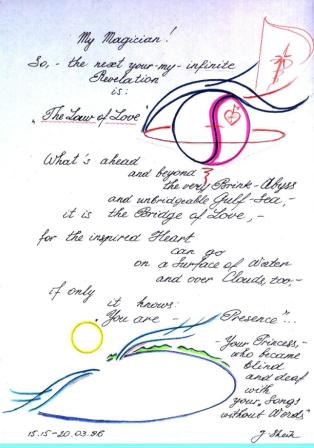 My Magician!
So,- the next your-my-infinite
Revelation
is:
"The Law of Love"
What's ahead
and beyond
the very Brink-Abyss
and unbridgeable Gulf-Sea,-
it is the Bridge of Love,-
for the inspired Heart
can go
on a Surface of Water
and over Clouds, too,-
if only
it knows:
"You are - Presence"...
-Your Princess,-
who became
blind
and deaf
with
your "Songs
without Words"
15.15-20.03.96